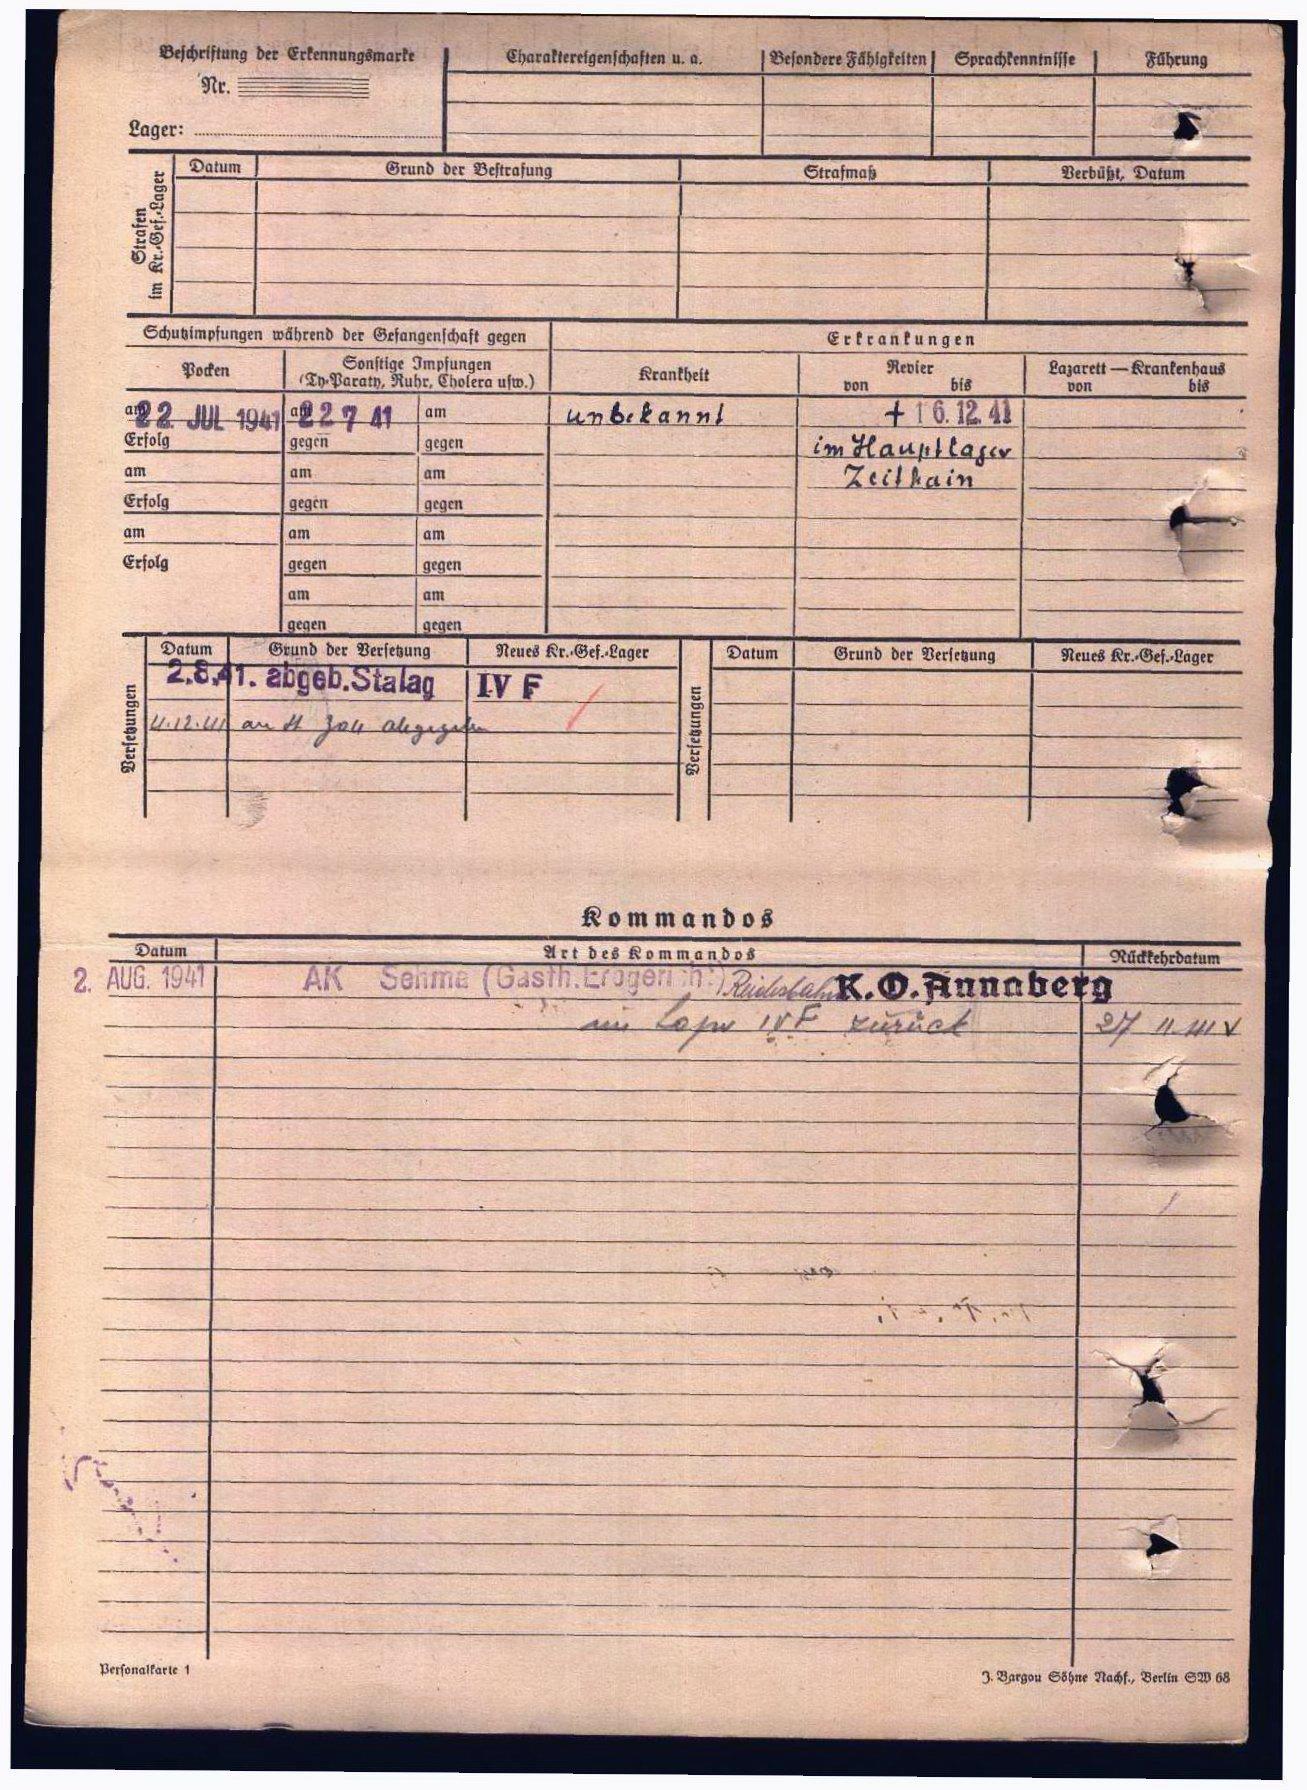 Beschriftung der Erkennungsmarke
Nr.
Lager:
Charaktereigenschaften u. a.
Besondere Fähigkeiten
Sprachkenntnisse
Führung
Strafen
im Kr.-Gef.-Lager
Datum
Grund der Bestrafung
Strafmaß
Verbüßt, Datum
Schutzimpfungen während der Gefangenschaft gegen
Erkrankungen
Pocken
Sonstige Impfungen
(Ty-Paraty, Ruhr, Cholera usw.)
Krankheit
Revier
von bis
Lazarett — Krankenhaus
von bis
am 22. JUL 1941 am 22 7 41 am unbekannt + 16.12.41
Erfolg gegen gegen im Hauptlager
am am am Zeithain
Erfolg gegen gegen
am am am
Erfolg gegen gegen
am am
gegen gegen
Versetzungen
Datum Grund der Versetzung Neues Kr.-Gef.-Lager
2.8.41. abgeb. Stalag IV F
an
Versetzungen
Datum Grund der Versetzung Neues Kr.-Gef.-Lager
Kommandos
Datum Art des Kommandos Rückkehrdatum
2. AUG. 1941 AK Sehma (Gasth. Erbgericht) Reichsbahn K.O. Annaberg
IV F zurück 27
Personalkarte 1
J. Bargou Söhne Nachf., Berlin SW 68